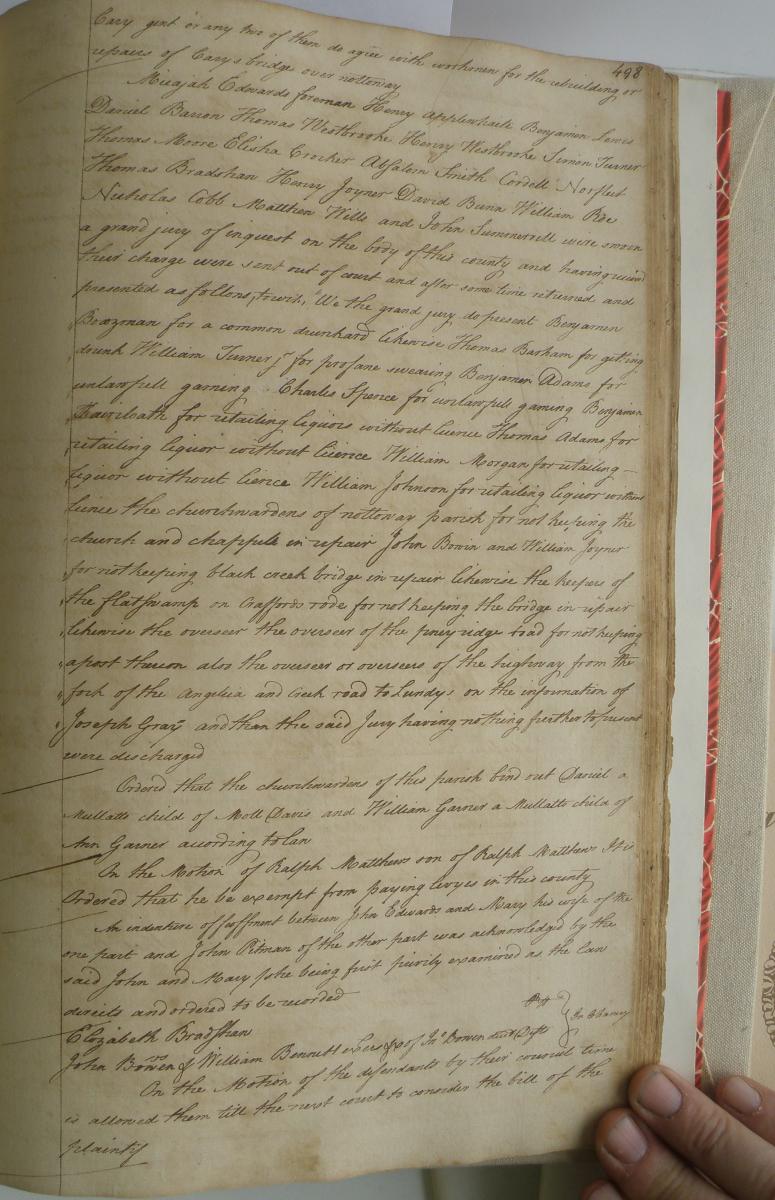 498
Cary gent or any two of them do agree with workmen for the rebuilding or
repairs of Cary's bridge over nottoway
Micajah Edwards foreman Henry Applewhaite Benjamin Lewis
Daniel Barron Thomas Westbrooke Henry Westbrooke Simon Turner
Thomas Moore Elisha Crocker Absalem Smith Cordell Norfleet
Thomas Bradshaw Henry Joyner David Bunn William Roe
Nicholas Cobb Matthew Wills and John Summerrell were sworn
a grand jury of inquest on the body of this county and having received
their charge were sent out of court and after some time returned and
presented as follows, towit, "We the grand jury do present Benjamin
Boazman for a common drunkard likewise Thomas Barham for getting
drunk William Turner jr for profane swearing Benjamin Adams for
unlawfull gaming Charles Spence for unlawfull gaming Benjamin
for retailing liquors without licence Thomas Adams for
retailing liquor without licence William Morgan for retailing -
liquor without licence William Johnson for retailing liquor without
licence the churchwardens of nottoway parish for not keeping the
church and chappels in repair John Bowin and William Joyner
for not keeping black creek bridge in repair likewise the keepers of
the flatswamp on Craffords rode for not keeping the bridge in repair
likewise the overseer the overseer of the piney ridge road for not keeping
a post thereon also the overseer or overseers of the highway from the
fork of the Angelica and Creek road to Lundys on the information of
Joseph Gray and than the said Jury having nothing further to present
were discharged
Ordered that the churchwardens of this parish bind out Daniel a
Mullatto child of Moll Davis and William Garner a Mullatto child of
Ann Garner according to law
On the Motion of Ralph Matthews son of Ralph Matthews It is
Ordered that he be exempt from paying levyes in this county
An indenture of feoffment between John Edwards and Mary his wife of the
one part and John Pitman of the other part was acknowledged by the
said John and Mary she being first privily examined as the law
directs and ordered to be recorded
Elizabeth Bradshaw
John Bowen & William Bennett exces of Jno Bowen decd Defts
In Chancy
On the Motion of the defendants by their council time
is allowed them till the next court to consider the bill of the
plaintif